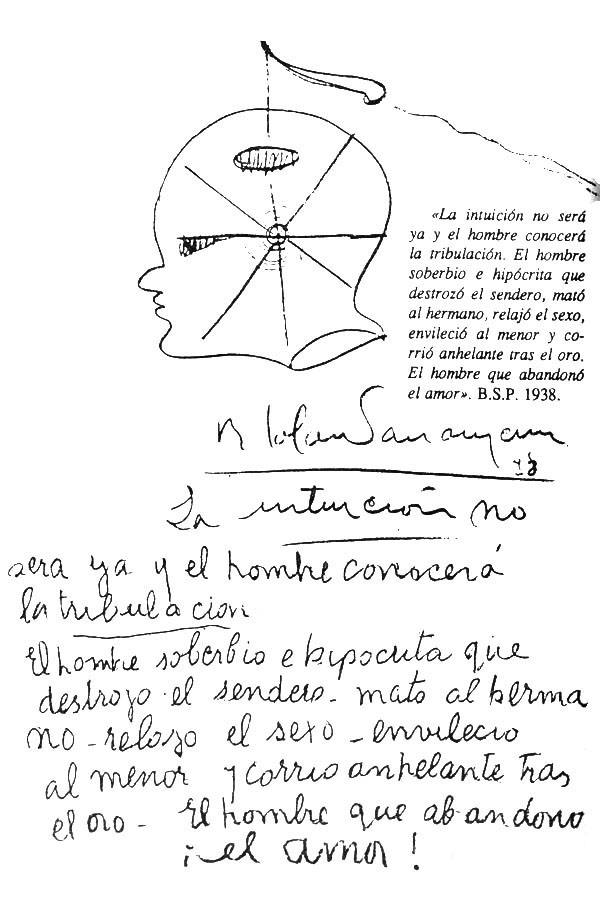 «La intuición no será
ya y el hombre conocerá
la tribulación. El hombre
soberbio e hipócrita que
destrozó el sendero, mató
al hermano, relajó el sexo,
envileció al menor y co-
rrió anhelante tras el oro.
El hombre que abandonó
el amor». B.S.P. 1938.
La intuición no
sera ya y el hombre conocerá
la tribulacion
El hombre soberbio e hipocrita que
destrozo el sendero - mato al herma
no - relajo el sexo - envilecio
al menor y corrio anhelante tras
el oro - El hombre que abandono
¡el amor!